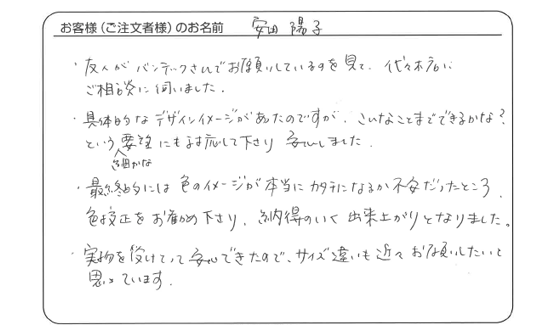 お客様（ご注文者様）のお名前 安田 陽子
・友人がバンテックさんでお願いしているのを見て、代々木店に
ご相談に伺いました。
・具体的なデザインイメージがあったのですが、こんなことまでできるかな？
という要望にも対応して下さり 安心しました。
細かな
・最終的には色のイメージが本当にカタチになるか不安だったところ、
色校正をお勧め下さり、納得のいく出来上がりとなりました。
・実物を受けとって安心できたので、サイズ違いも近々お願いしたいと
思っています。